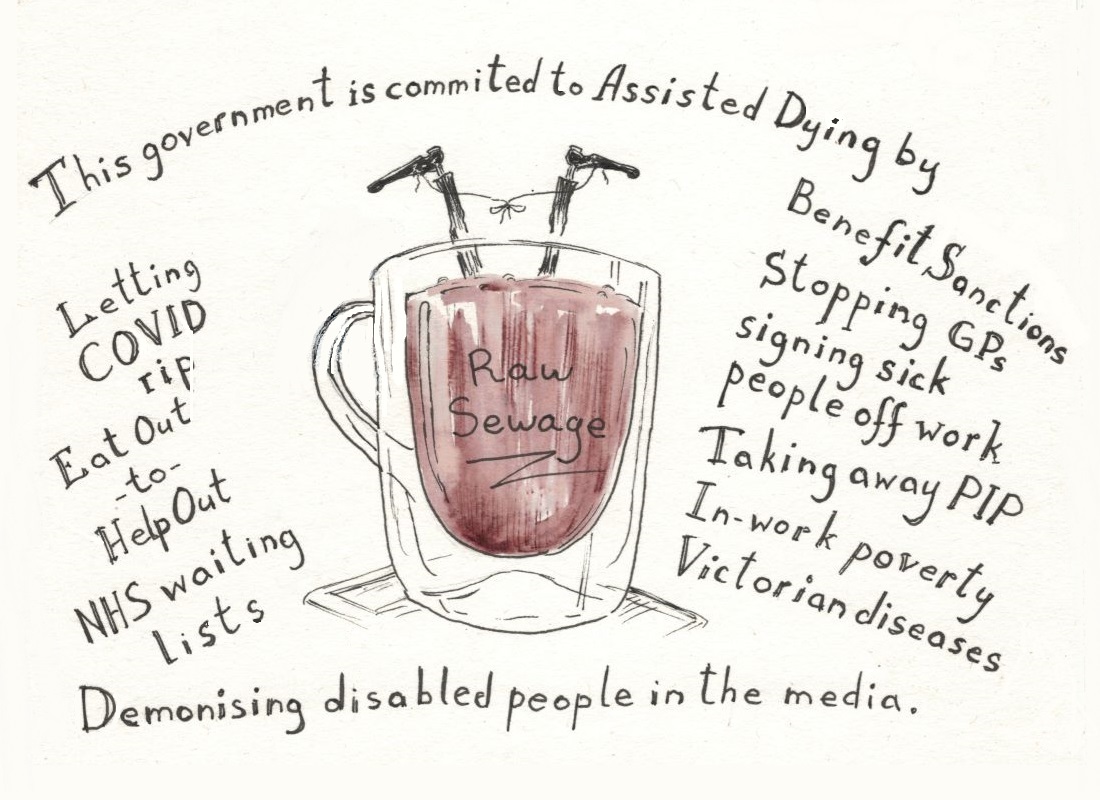 This government is commited to Assisted Dying by
Letting
COVID
rip
Eat Out
-to-
Help Out
NHS waiting
lists
Raw
Sewage
Benefit Sanctions
Stopping GPs
signing sick
people off work
Taking away PIP
In-work poverty
Victorian diseases
Demonising disabled people in the media.